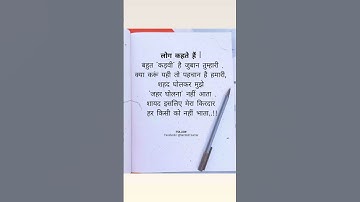 लोग कहते हैं |
बहुत 'कड़वी' है जुबान तुम्हारी .
क्या करूं यही तो पहचान है हमारी,
शहद घोलकर मुझे
'जहर घोलना' नहीं आता .
शायद इसलिए मेरा किरदार
हर किसी को नहीं भाता..!!